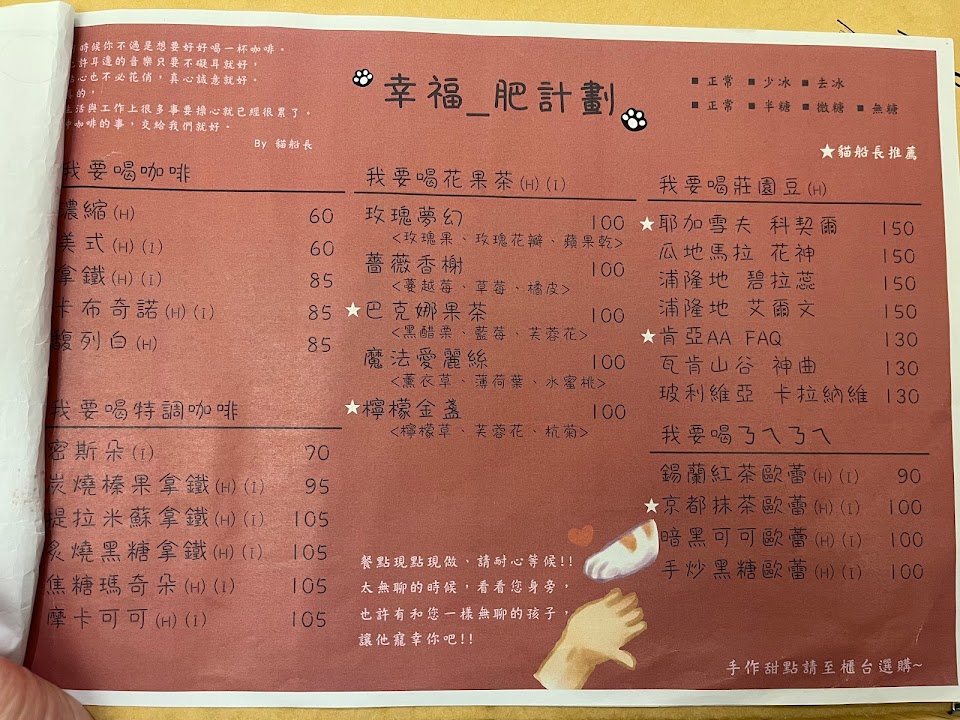 時候你不過是想要好好喝一杯咖啡。
許耳邊的音樂只要不礙耳就好,
心也不必花俏,真心誠意就好。
的,
活與工作上很多事要操心就已經很累了。
咖啡的事,交給我們就好。
By 貓船長
幸福_肥計劃
■ 正常 ■ 少冰 ■ 去冰
■ 正常 ■ 半糖 ■ 微糖 ■ 無糖
★貓船長推薦
我要喝咖啡
濃縮(H) 60
美式(H)(I) 60
拿鐵(H)(I) 85
卡布奇諾(H)(I) 85
馥列白(H) 85
我要喝特調咖啡
密斯朵(I) 70
炭燒榛果拿鐵(H)(I) 95
提拉米蘇拿鐵(H)(I) 105
炙燒黑糖拿鐵(H)(I) 105
焦糖瑪奇朵(H)(I) 105
摩卡可可(H)(I) 105
我要喝花果茶(H)(I)
玫瑰夢幻 100
<玫瑰果、玫瑰花瓣、蘋果乾>
薔薇香榭 100
<蔓越莓、草莓、橘皮>
★巴克娜果茶 100
<黑醋栗、藍莓、芙蓉花>
魔法愛麗絲 100
<薰衣草、薄荷葉、水蜜桃>
★檸檬金盞 100
<檸檬草、芙蓉花、杭菊>
餐點現點現做、請耐心等候!!
太無聊的時候,看看您身旁,
也許有和您一樣無聊的孩子,
讓他寵幸你吧!!
我要喝莊園豆(H)
★耶加雪夫 科契爾 150
瓜地馬拉 花神 150
浦隆地 碧拉蕊 150
浦隆地 艾爾文 150
★肯亞AA FAQ 130
瓦肯山谷 神曲 130
玻利維亞 卡拉納維 130
我要喝ㄋㄟㄋㄟ
錫蘭紅茶歐蕾(H)(I) 90
★京都抹茶歐蕾(H)(I) 100
暗黑可可歐蕾(H)(I) 100
手炒黑糖歐蕾(H)(I) 100
手作甜點請至櫃台選購~